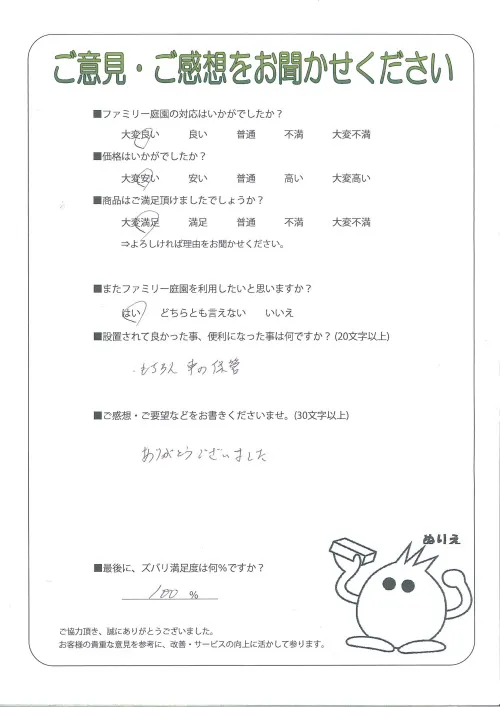 ご意見・ご感想をお聞かせください
■ファミリー庭園の対応はいかがでしたか？
大変良い 良い 普通 不満 大変不満
■価格はいかがでしたか？
大変安い 安い 普通 高い 大変高い
■商品はご満足頂けましたでしょうか？
大変満足 満足 普通 不満 大変不満
⇒よろしければ理由をお聞かせください。
■またファミリー庭園を利用したいと思いますか？
はい どちらとも言えない いいえ
■設置されて良かった事、便利になった事は何ですか？(20文字以上)
もちろん 車の保管
■ご感想・ご要望などをお書きくださいませ。(30文字以上)
ありがとうございました
ぬりえ
■最後に、ズバリ満足度は何％ですか？
100 %
ご協力頂き、誠にありがとうございました。
お客様の貴重な意見を参考に、改善・サービスの向上に活かして参ります。